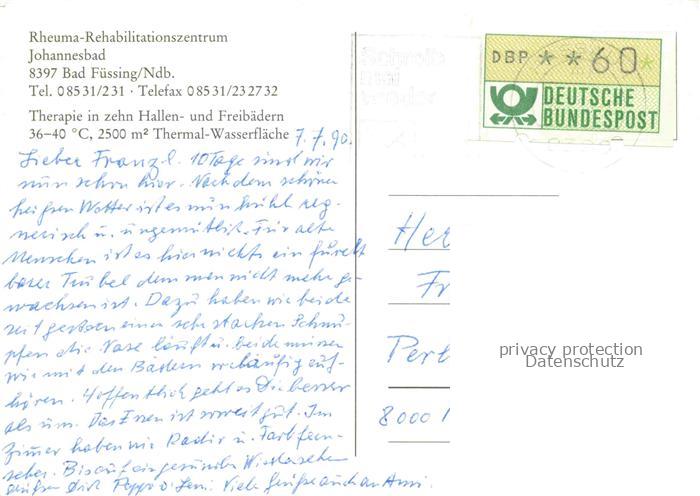 Rheuma-Rehabilitationszentrum
Johannesbad
8397 Bad Füssing/Ndb.
Tel. 08531/231 · Telefax 08531/232732
Therapie in zehn Hallen- und Freibädern
36–40 °C, 2500 m² Thermal-Wasserfläche
7.7.90.
Lieber Franzl. 10 Tage sind wir
nun schon hier. Nach dem schönen
heißen Wetter ist es nun kühl reg-
nerisch u. ungemütlich. Für alte
Menschen ist es hier nichts ein furcht
barer Trubel dem man nicht mehr ge-
wachsen ist. Dazu haben wir beide
seit gestern einen sehr starken Schnu-
pfen die Nase läuft u. beide müssen
wir mit den Bädern vorläufig auf-
hören. Hoffentlich geht es Dir besser
als uns. Das Essen ist soweit gut. Im
Zimmer haben wir Radio u. Farbfern-
seher. Bis auf ein gesundes Wiedersehen
grüßen Dich Peppo u. Leni. Viele Grüße auch an Anni.
Schreib
mal
wieder
DBP * * 60 *
DEUTSCHE
BUNDESPOST
Her
Fr
Perl
8000
privacy protection
Datenschutz